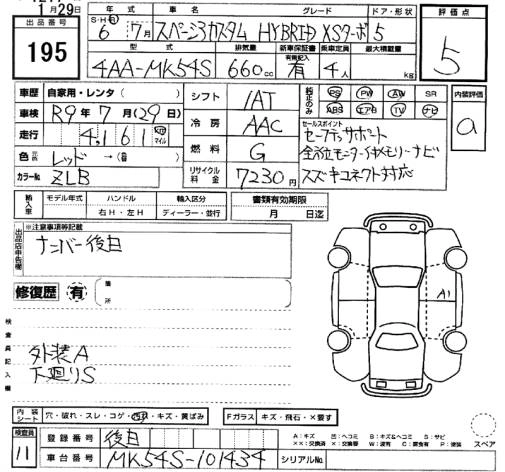 1月29日
出品番号
195
年式
車名
グレード
ドア・形状
評価点
S・H・R
6年7月
スペーシアカスタム HYBRID XSターボ
5
5
型式
排気量
新車保証書
有無記入
乗車定員
最大積載量
4AA-MK54S
660cc
有
4人
kg
車歴
自家用・レンタ( )
車検
R9年7月(29日)
走行
4,161
km
マイル
色
元色
レッド→( 色)
カラーNo
ZLB
シフト
IAT
冷房
AAC
燃料
G
リサイクル料金
7230円
純正のみ
PS
PW
AW
SR
ABS
エアB
TV
ナビ
内装評価
a
セールスポイント
セーフティサポート
全方位モニター付メモリーナビ
スズキコネクト対応
輸入車
モデル年式
ハンドル
輸入区分
右H・左H
ディーラー・並行
書類有効期限
月 日迄
出品店申告欄
※注意事項等記載
ナンバー後日
修復歴
有
箇所
A1
検査員記入欄
外装A
下廻りS
内装シート
穴・破れ・スレ・コゲ・汚れ・キズ・黄ばみ
Fガラス
キズ・飛石・×要す
検査員
11
登録番号
後日
車台番号
MK54S-101434
シリアルNo.
A:キズ
凹:ヘコミ
B:キズ&ヘコミ
S:サビ
××:交換済
×:要交換
W:波有
C:腐食有
P:塗装
スペア